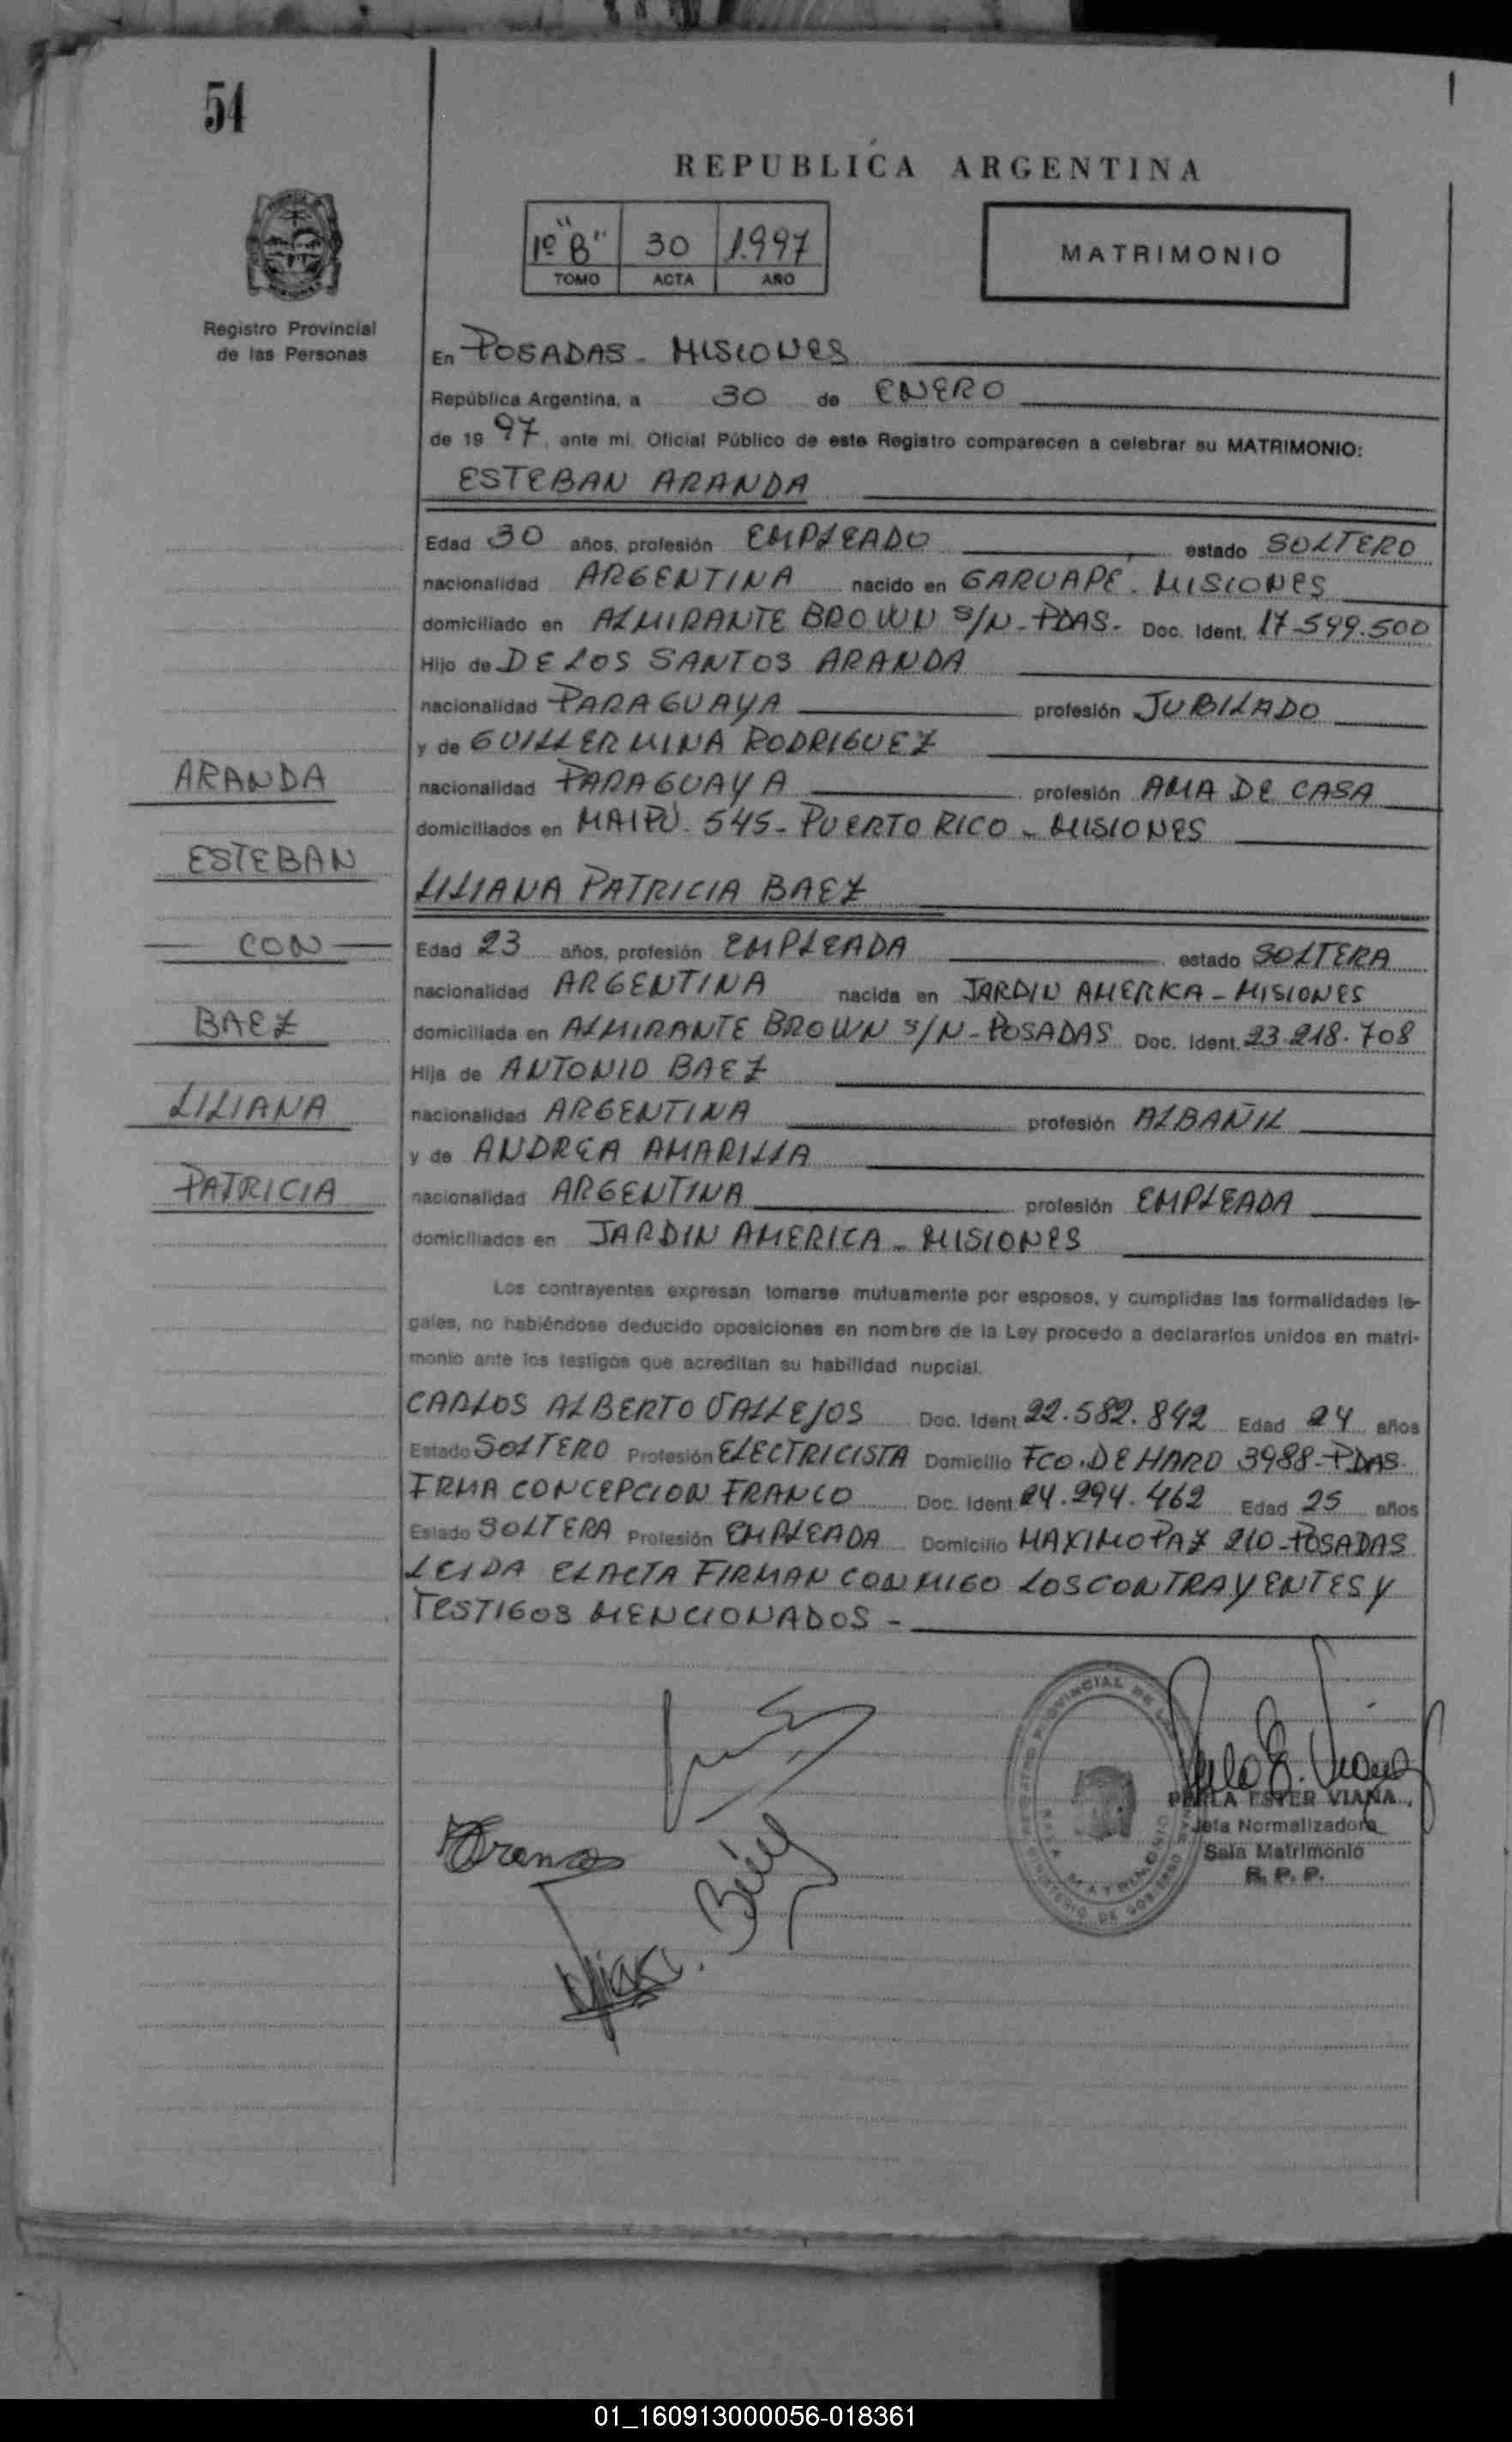 54
REPUBLICA ARGENTINA
1º "B" 30 1.997
TOMO ACTA AÑO
MATRIMONIO
Registro Provincial
de las Personas
En POSADAS - MISIONES
República Argentina, a 30 de ENERO
de 19 97, ante mi, Oficial Público de este Registro comparecen a celebrar su MATRIMONIO:
ESTEBAN ARANDA
Edad 30 años, profesión EMPLEADO estado SOLTERO
nacionalidad ARGENTINA nacido en GARUAPE - MISIONES
domiciliado en ALMIRANTE BROWN S/N - PDAS - Doc. Ident. 17.599.500
Hijo de DE LOS SANTOS ARANDA
nacionalidad PARAGUAYA profesión JUBILADO
y de GUILLERMINA RODRIGUEZ
nacionalidad PARAGUAYA profesión AMA DE CASA
domiciliados en MAIPU. 545 - PUERTO RICO - MISIONES
LILIANA PATRICIA BAEZ
Edad 23 años, profesión EMPLEADA estado SOLTERA
nacionalidad ARGENTINA nacida en JARDIN AMERICA - MISIONES
domiciliada en ALMIRANTE BROWN S/N - POSADAS Doc. Ident. 23.218.708
Hija de ANTONIO BAEZ
nacionalidad ARGENTINA profesión ALBAÑIL
y de ANDREA AMARILLA
nacionalidad ARGENTINA profesión EMPLEADA
domiciliados en JARDIN AMERICA - MISIONES
ARANDA
ESTEBAN
CON
BAEZ
LILIANA
PATRICIA
Los contrayentes expresan tomarse mutuamente por esposos, y cumplidas las formalidades le-
gales, no habiéndose deducido oposiciones en nombre de la Ley procedo a declararlos unidos en matri-
monio ante los testigos que acreditan su habilidad nupcial.
CARLOS ALBERTO VALLEJOS Doc. Ident. 22.582.842 Edad 24 años
Estado SOLTERO Profesión ELECTRICISTA Domicilio FCO. DE HARO 3988 - PDAS.
IRMA CONCEPCION FRANCO Doc. Ident. 24.294.462 Edad 25 años
Estado SOLTERA Profesión EMPLEADA Domicilio MAXIMO PAZ 210 - POSADAS
LEIDA EL ACTA FIRMAN CONMIGO LOS CONTRAYENTES Y
TESTIGOS MENCIONADOS -
PERLA ESTER VIANA
Jefa Normalizadora
Sala Matrimonio
R. P. P.
01_160913000056-018361